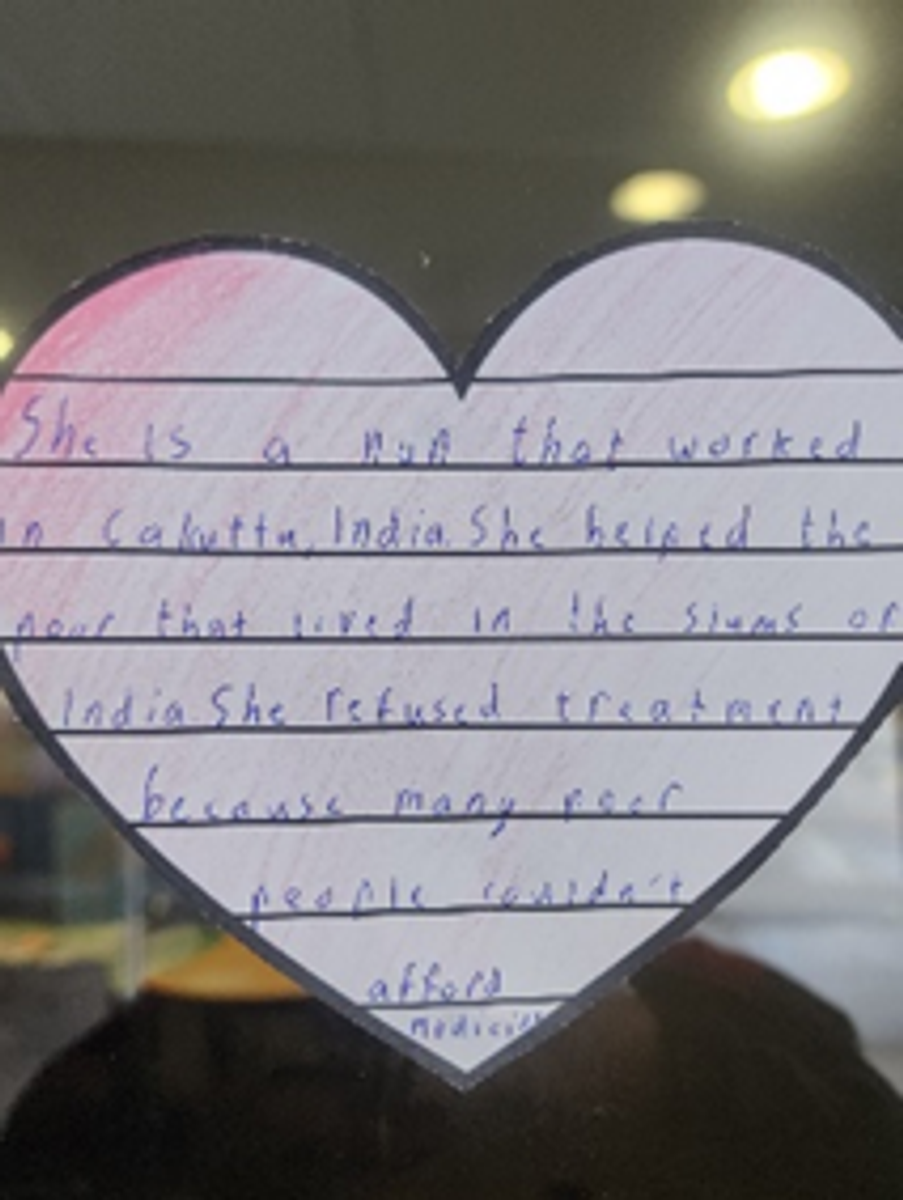 She is a nun that worked
in Cakutta, India. She helped the
poor that lived in the slums of
India She refused treatment
because many poor
people couldn't
afford
medicin